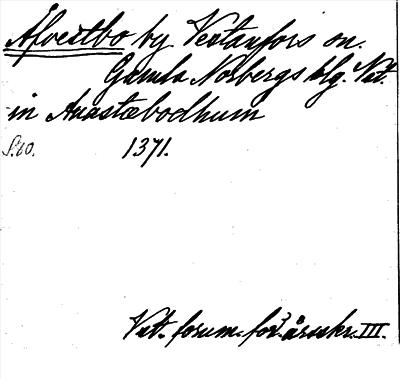 Åfvestbo by Vestanfors sn.
Gamla Norbergs blg. Vst.
in Auastæbodhum
S. 20. 1371.
Vst. fornm. för:s årsskr. III.